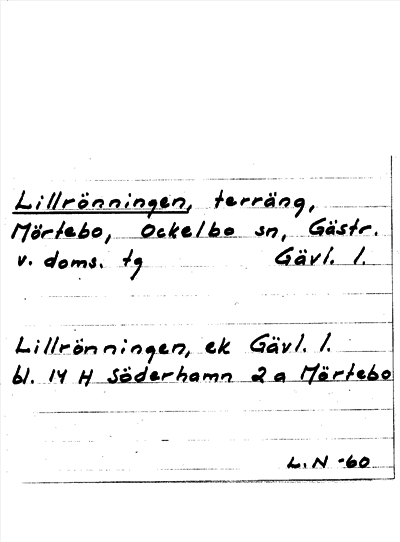 Lillrönningen, terräng,
Mörtebo, Ockelbo sn, Gästr.
v. doms. tg Gävl. l.
Lillrönningen, ek Gävl. l.
bl. 14 H Söderhamn 2 a Mörtebo
L.N -60